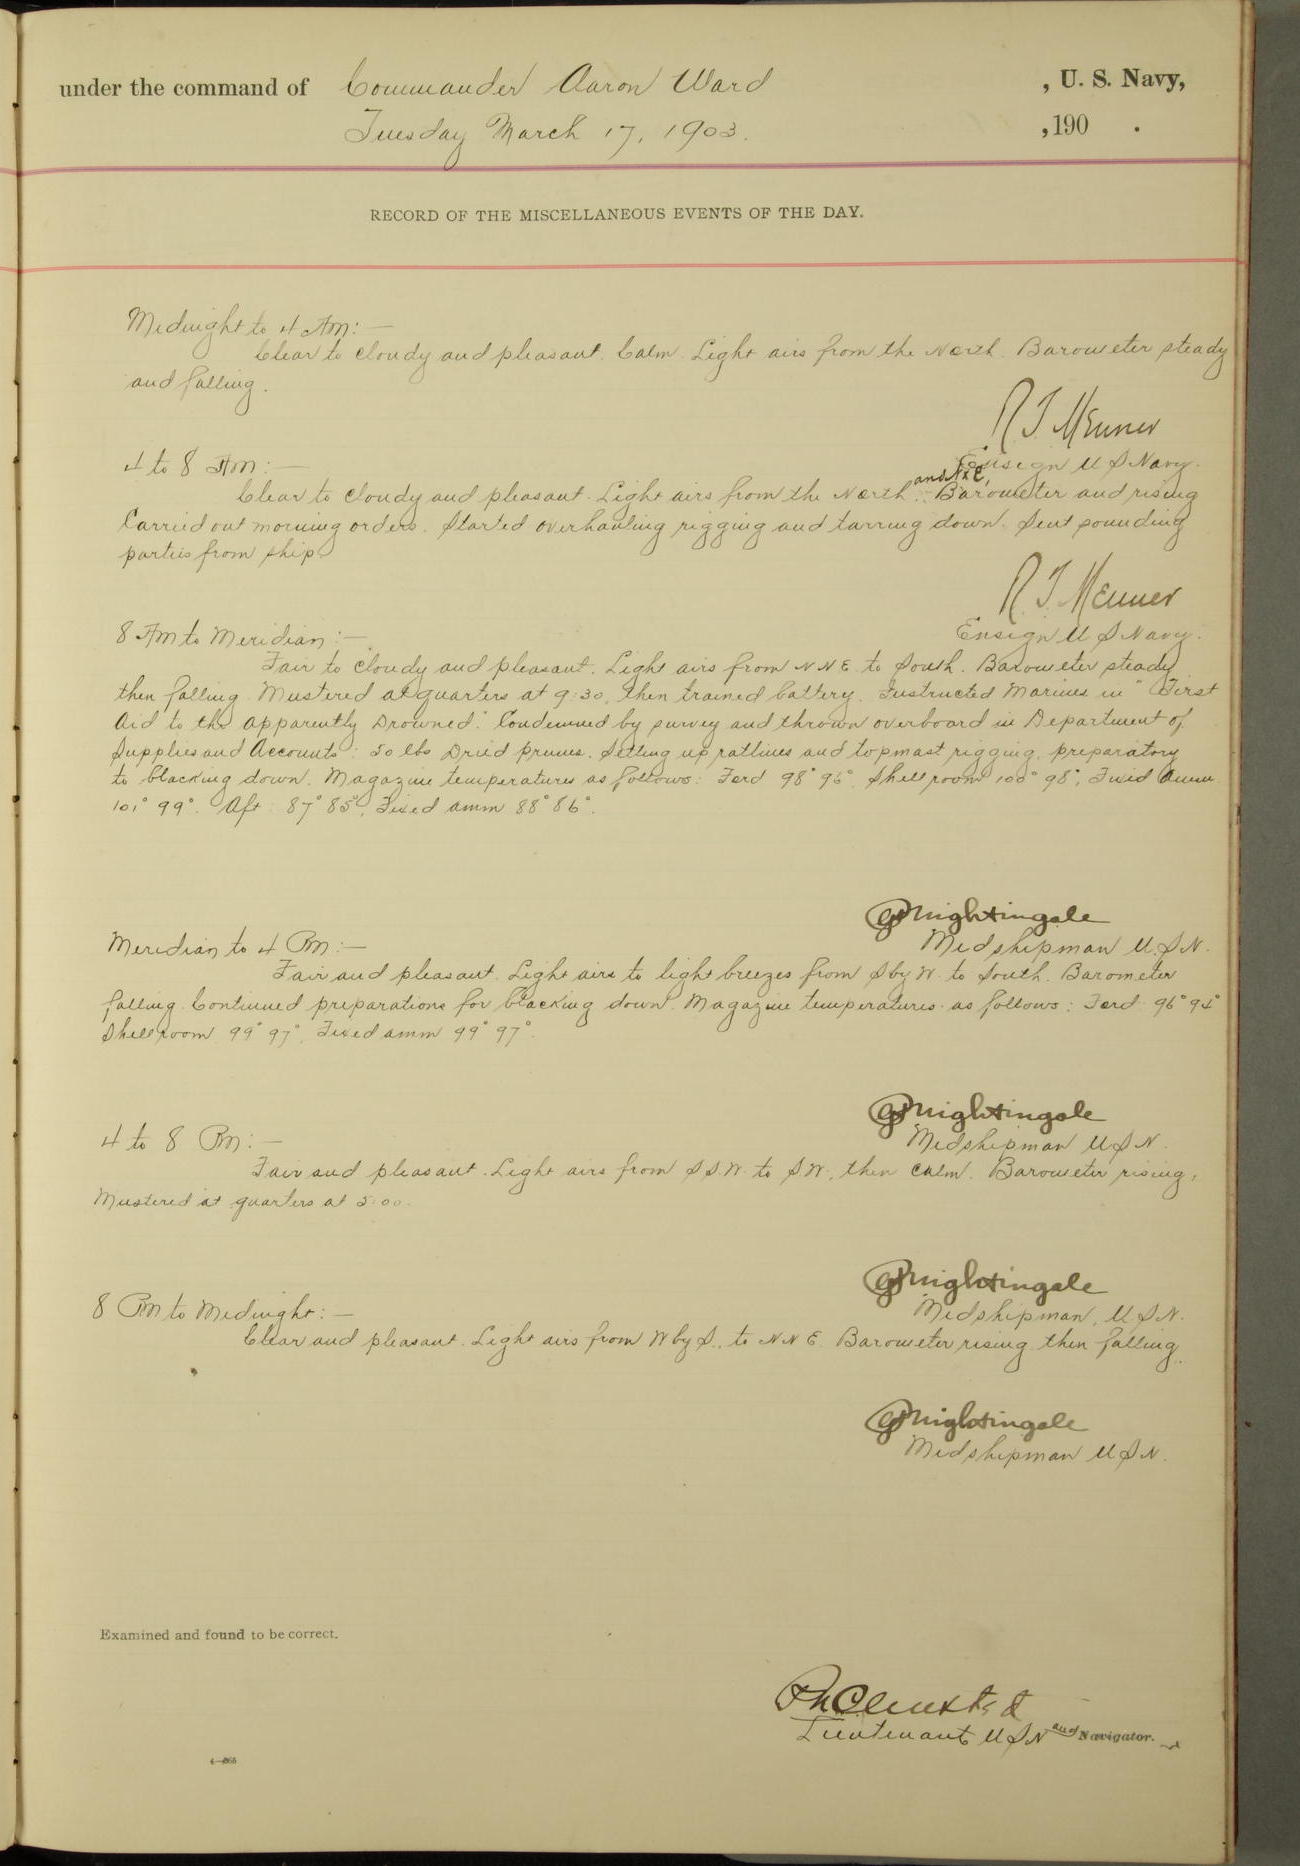 under the command of Commander Aaron Ward , U. S. Navy,
Tuesday March 17, 1903. , 190 .
RECORD OF THE MISCELLANEOUS EVENTS OF THE DAY.
Midnight to 4 AM:—
Clear to cloudy and pleasant. Calm. Light airs from the North. Barometer steady
and falling.
R T Menner
Ensign U S Navy.
4 to 8 AM:—
and NxE,
Clear to cloudy and pleasant. Light airs from the North. Barometer and rising
Carried out morning orders. Started overhauling rigging and tarring down. Sent sounding
parties from ship.
R. T. Menner
Ensign U S Navy.
8 AM to Meridian:—
Fair to cloudy and pleasant. Light airs from N N E to South. Barometer steady
then falling. Mustered at quarters at 9:30, then trained battery. Instructed Marines in "First
Aid to the Apparently Drowned." Condemned by survey and thrown overboard in Department of
Supplies and Accounts: 50 lbs Dried prunes. Setting up ratlines and topmast rigging, preparatory
to blacking down. Magazine temperatures as follows: Ford 98° 96°, Shell room 100° 98°, Fixed Amm
101° 99°. Aft: 87° 85°, Fixed amm 88° 86°.
Nightingale
Midshipman U.S.N.
Meridian to 4 PM:—
Fair and pleasant. Light airs to light breezes from S by W. to South. Barometer
falling. Continued preparations for blacking down. Magazine temperatures as follows: Ford 96° 94°
Shell room 99° 97°, Fixed amm 99° 97°.
Nightingale
Midshipman U.S.N.
4 to 8 PM:—
Fair and pleasant. Light airs from S S.W. to S W., then calm. Barometer rising,
Mustered at quarters at 5:00.
Nightingale
Midshipman, U.S.N.
8 PM to Midnight:—
Clear and pleasant. Light airs from W by S., to N N E. Barometer rising then falling.
Nightingale
Midshipman U S N.
Examined and found to be correct.
Lieutenant U S N and Navigator.